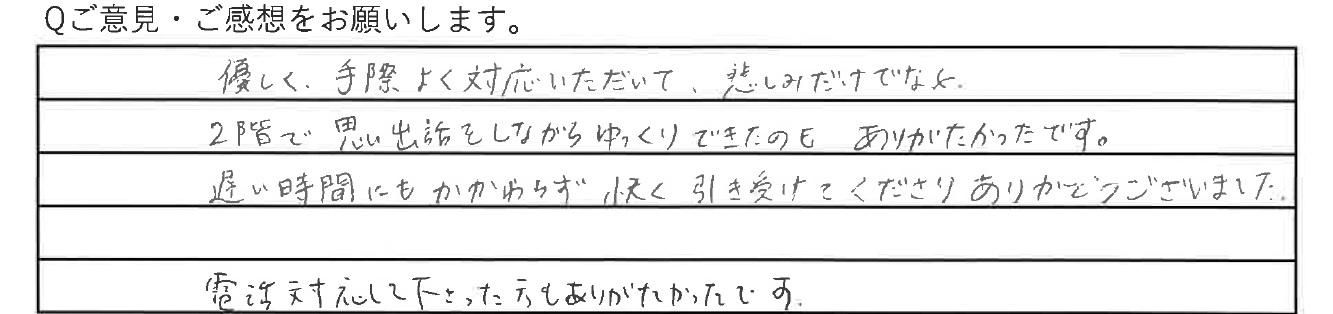 Qご意見・ご感想をお願いします。
優しく、手際よく対応いただいて、悲しみだけでなく、
2階で思い出話をしながらゆっくりできたのも ありがたかったです。
遅い時間にもかかわらず 快く引き受けてくださりありがとうございました。
電話対応して下さった方もありがたかったです。